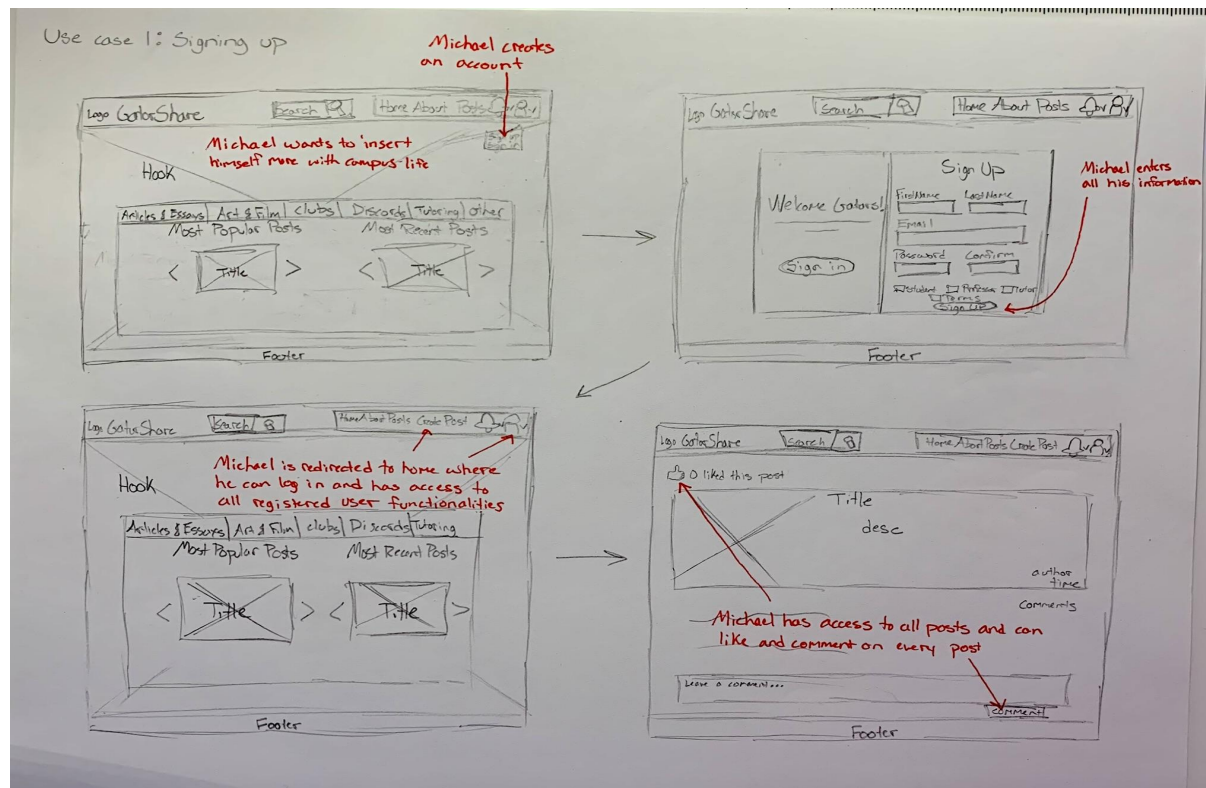 Use case 1: Signing up
Michael creates
an account
Logo GatorShare
Search
Home About Posts
Sign up
Sign in
Michael wants to insert
himself more with campus life
Hook
Articles & Essays
Art & Film
clubs
Discords
Tutoring
other
Most Popular Posts
Most Recent Posts
<
Title
>
<
Title
>
Footer
Logo GatorShare
Search
Home About Posts
Welcome Gators!
Sign in
Sign Up
First Name
Last Name
Email
Password
Confirm
Student
Professor
Tutor
Terms
Sign Up
Michael enters
all his information
Footer
Logo GatorShare
Search
Home About Posts Create Post
Michael is redirected to home where
he can log in and has access to
all registered user functionalities
Hook
Articles & Essays
Art & Film
clubs
Discords
Tutoring
Most Popular Posts
Most Recent Posts
<
Title
>
<
Title
>
Footer
Logo GatorShare
Search
Home About Posts Create Post
0 liked this post
Title
desc
author
time
Comments
Michael has access to all posts and can
like and comment on every post
Leave a comment...
comment
Footer